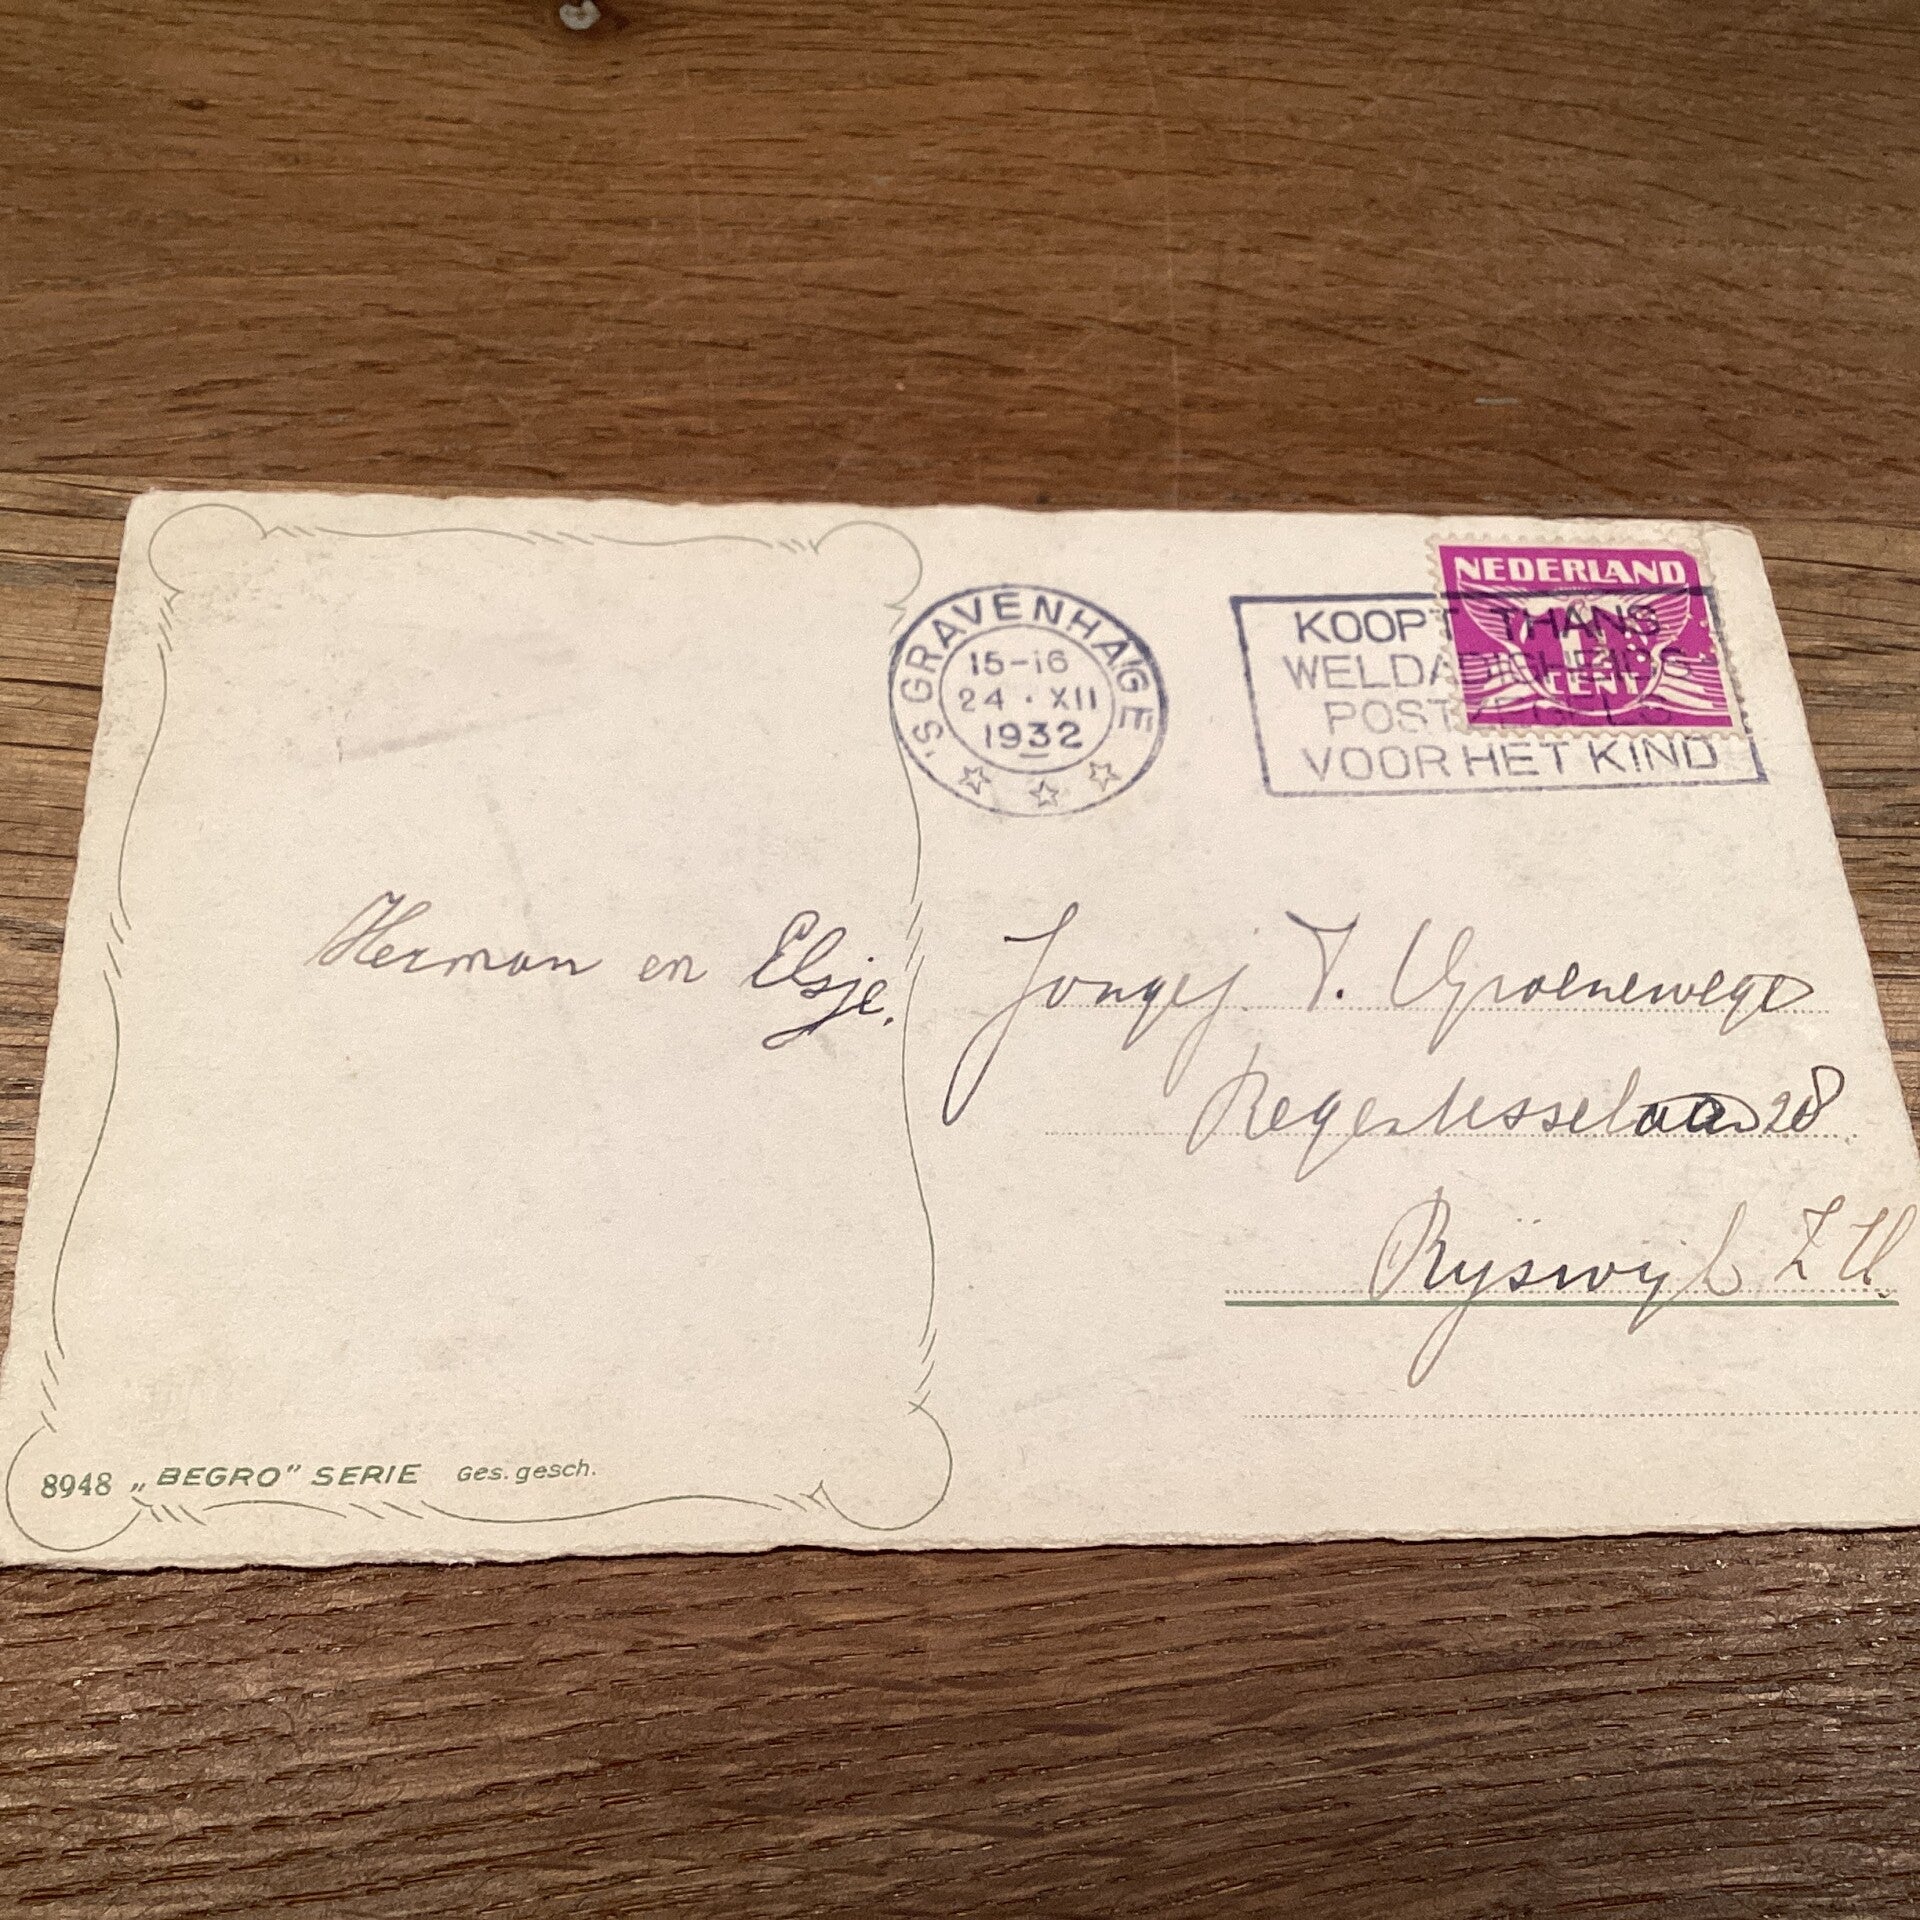 'S GRAVENHAGE
15-16
24 · XII
1932
NEDERLAND
1½
CENT
KOOPT THANS
WELDADIGHEIDS
POSTZEGELS
VOOR HET KIND
Herman en Elsje.
Jongej. T. Groenewege
Regentesselaan 28.
Ryswijk Z H.
8948 „BEGRO" SERIE Ges. gesch.